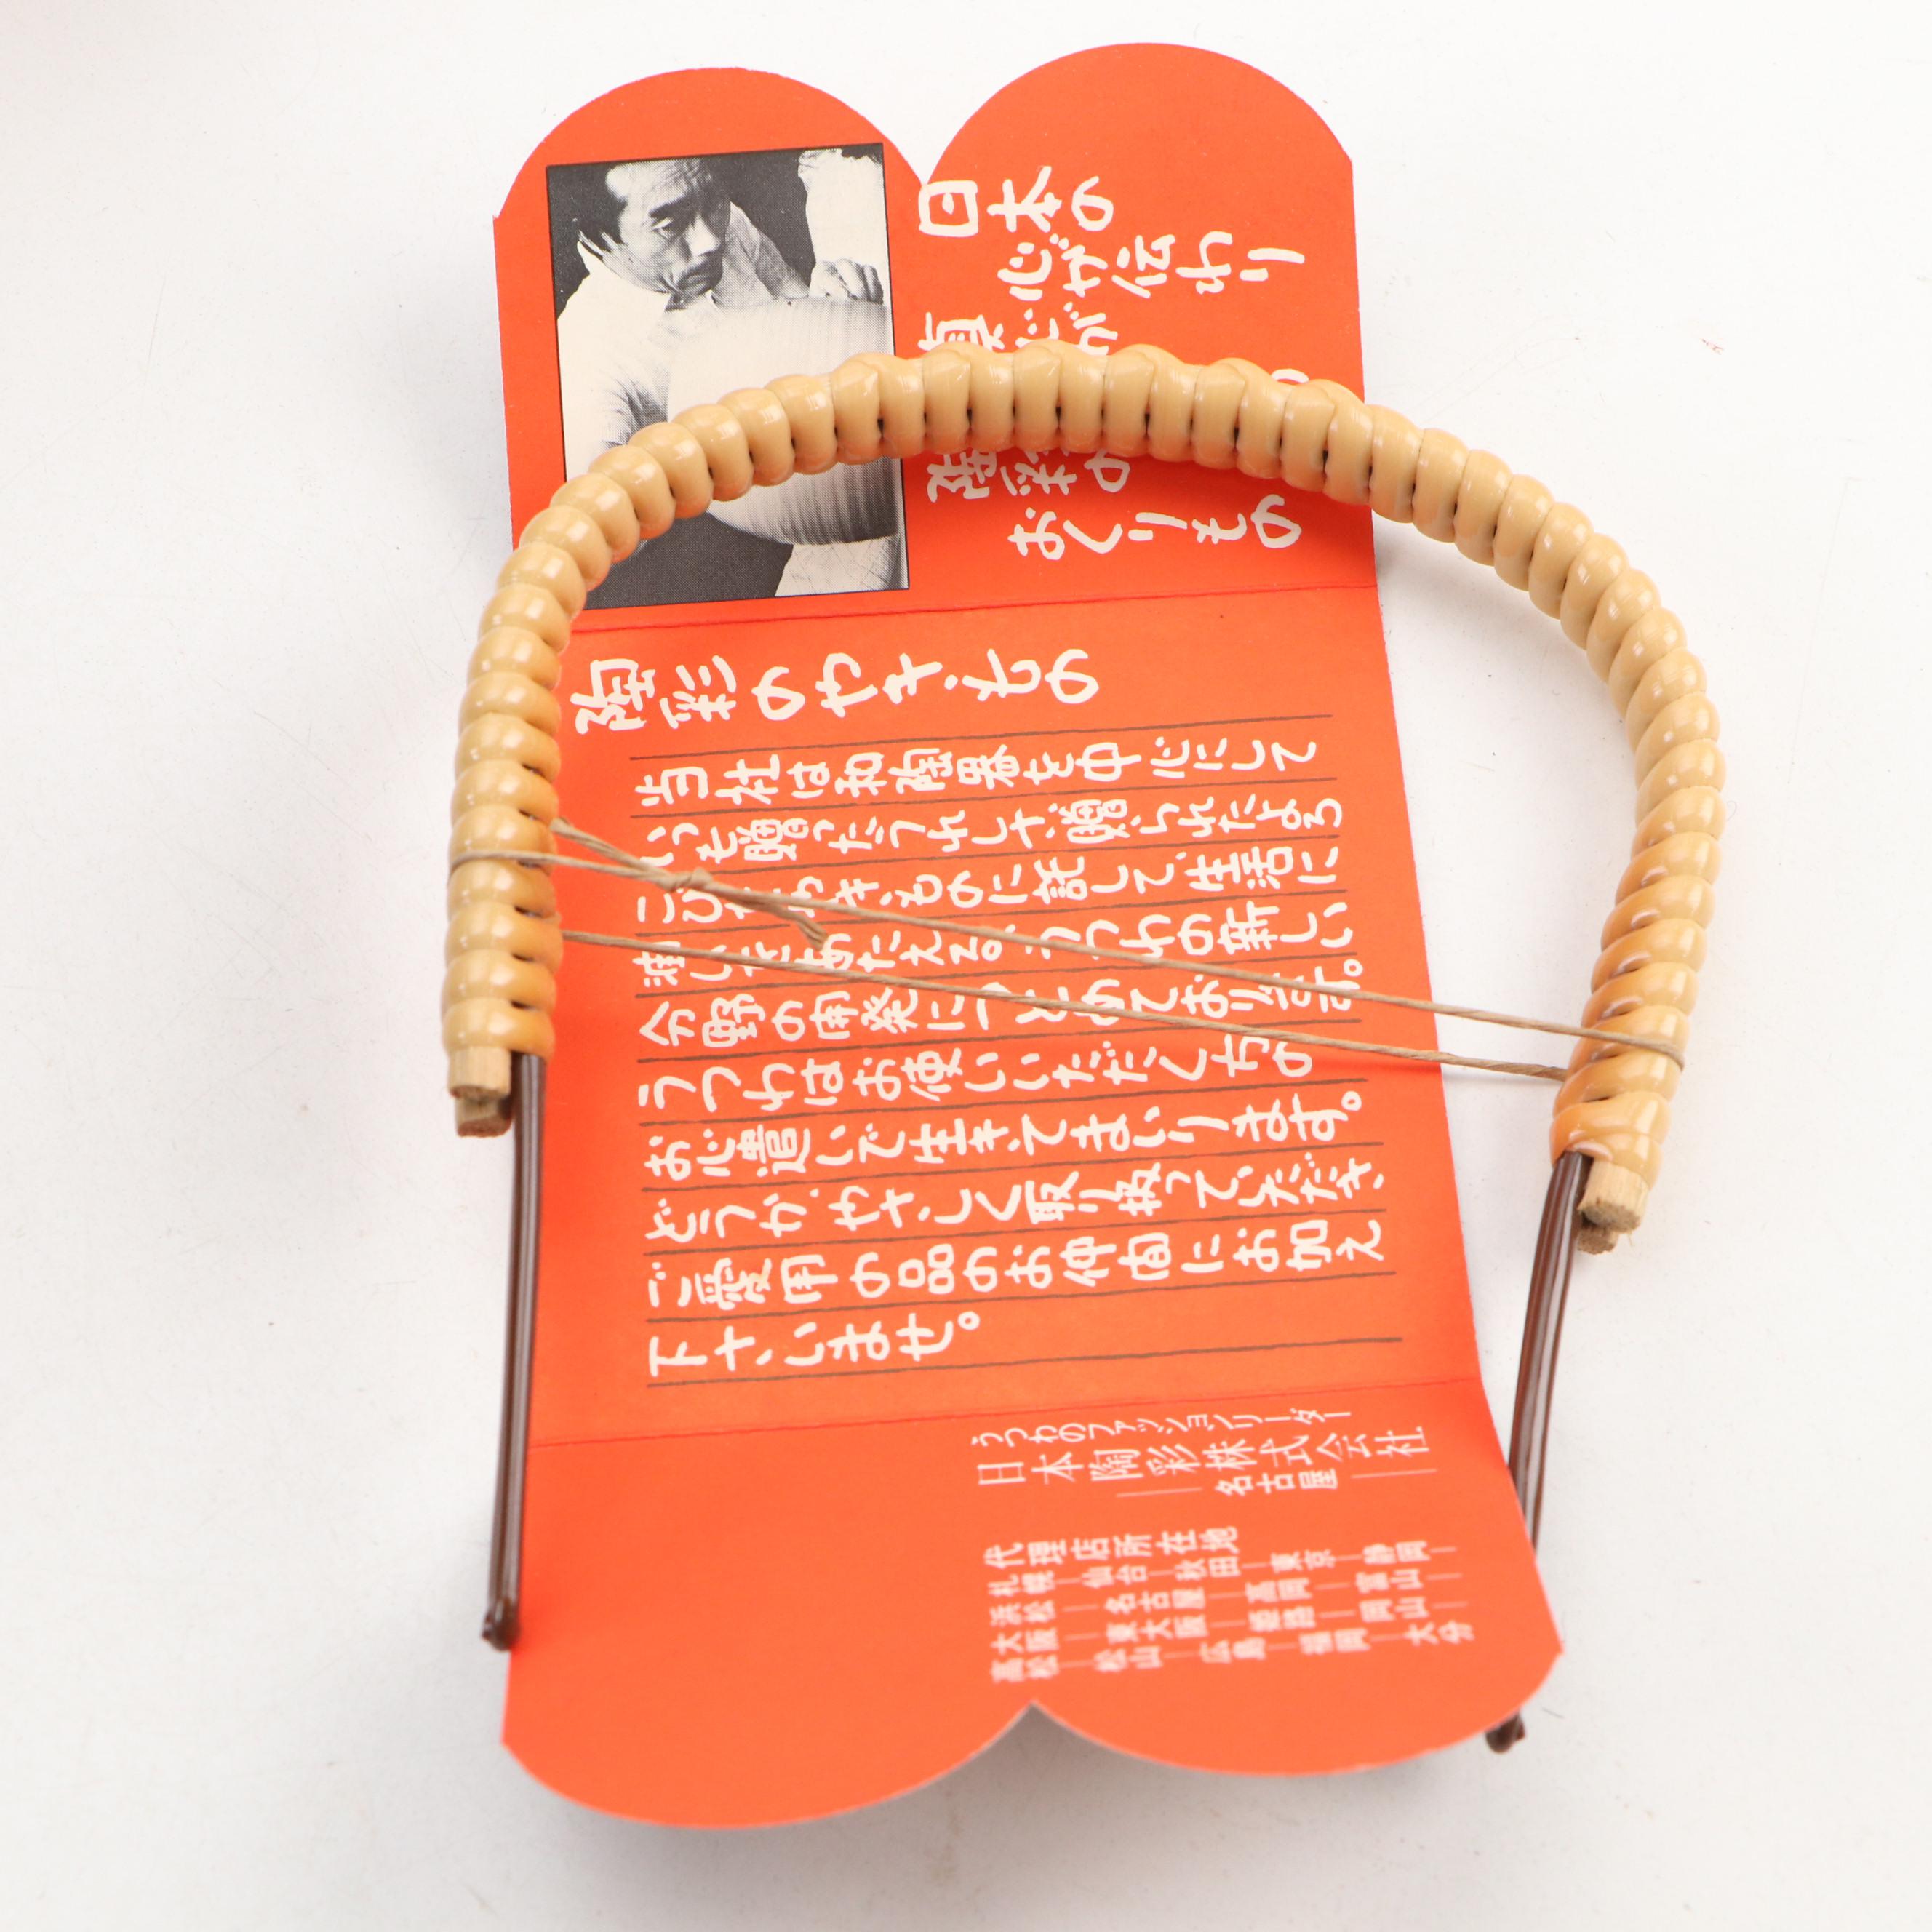 日本の
心が伝わり
陶彩の
おくりもの
陶彩のやきもの
当社は和陶器を中心にして
いつも贈ってうれしさ、贈られたよろ
こびをやきものに託して、生活に
潤いをあたえる。うつわの新しい
分野の開発につとめております。
うつわはお使いいただく方の
お心遣いで生きてまいります。
どうかやさしく取り扱っていただき、
ご愛用の品のお仲間にお加え
下さいませ。
うつわのファッションリーダー
日本陶彩株式会社
名古屋
代理店所在地
札幌―仙台―秋田―東京―静岡―
浜松―名古屋―高岡―富山―
大阪―東大阪―姫路―岡山―
高松―松山―広島―福岡―大分